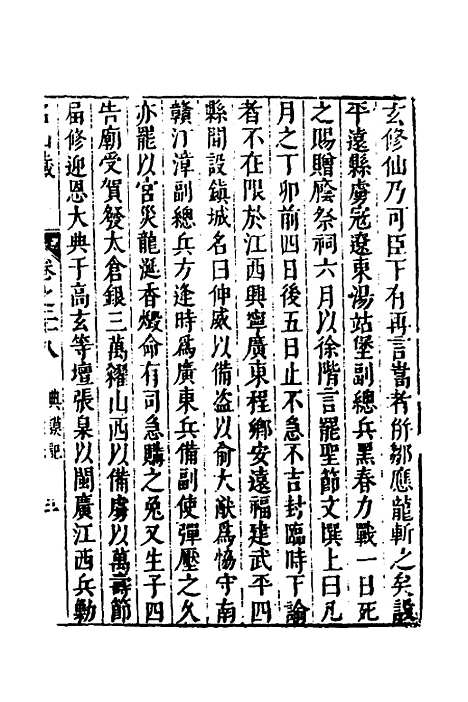 玄修仙乃可臣下有再言嵩者併鄒應龍斬之矣設
平遠縣虜寇遼東湯站堡副總兵黑春力戰一日死
之賜贈廕祭祠六月以徐階言罷聖節文撰上曰凡
月之丁卯前四日後五日止不急不吉封臨時下諭
者不在限於江西興寧廣東程鄉安遠福建武平四
縣間設鎮城名曰伸威以備盜以俞大猷爲恊守南
贛汀漳副總兵方逢時爲廣東兵備副使彈壓之久
亦罷以宮災龍涎香燬命有司急購之兔又生子四
告廟受賀發太倉銀三萬糴山西以備虜以萬壽節
屆修迎恩大典于高玄等壇張臬以閩廣江西兵勦
名山藏 卷之二十八 典謨記 三